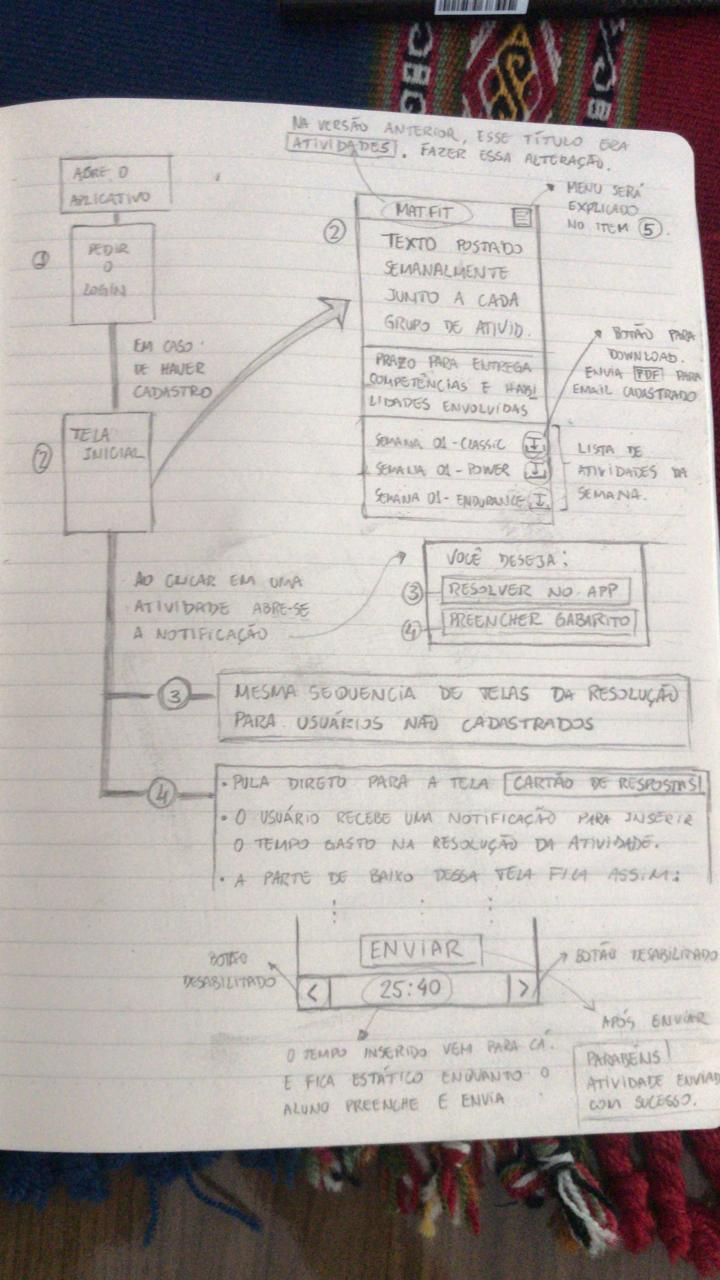 NA VERSÃO ANTERIOR, ESSE TÍTULO ERA
ATIVIDADES. FAZER ESSA ALTERAÇÃO.
ABRE O
APLICATIVO
1
PEDIR
O
LOGIN
EM CASO
DE HAVER
CADASTRO
2
TELA
INICIAL
2
MATFIT
MENU SERÁ
EXPLICADO
NO ITEM 5.
TEXTO POSTADO
SEMANALMENTE
JUNTO A CADA
GRUPO DE ATIVID.
PRAZO PARA ENTREGA
COMPETÊNCIAS E HABI
LIDADES ENVOLVIDAS
SEMANA 01-CLASSIC
SEMANA 01-POWER
SEMANA 01-ENDURANCE
BOTÃO PARA
DOWNLOAD.
ENVIA PDF PARA
EMAIL CADASTRADO
LISTA DE
ATIVIDADES DA
SEMANA.
AO CLICAR EM UMA
ATIVIDADE ABRE-SE
A NOTIFICAÇÃO
VOCÊ DESEJA:
3 RESOLVER NO APP
4 PREENCHER GABARITO
3 MESMA SEQUENCIA DE TELAS DA RESOLUÇÃO
PARA USUÁRIOS NÃO CADASTRADOS
4 • PULA DIRETO PARA A TELA CARTÃO DE RESPOSTAS
• O USUÁRIO RECEBE UMA NOTIFICAÇÃO PARA INSERIR
O TEMPO GASTO NA RESOLUÇÃO DA ATIVIDADE.
• A PARTE DE BAIXO DESSA TELA FICA ASSIM:
ENVIAR
< 25:40 >
BOTÃO
DESABILITADO
BOTÃO DESABILITADO
O TEMPO INSERIDO VEM PARA CÁ.
E FICA ESTÁTICO ENQUANTO O
ALUNO PREENCHE E ENVIA
APÓS ENVIAR
PARABÉNS!
ATIVIDADE ENVIADA
COM SUCESSO.